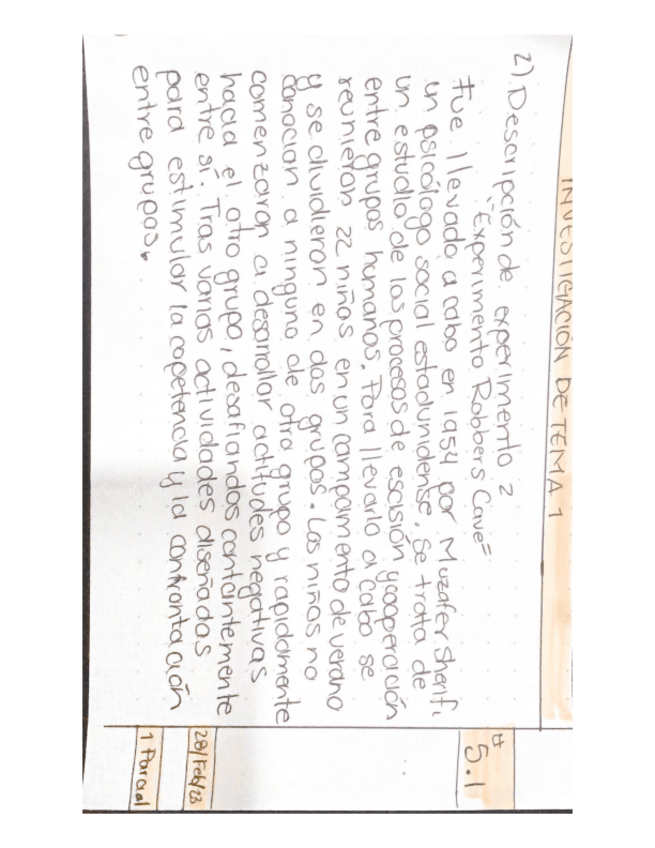 INVESTIGACIÓN DE TEMA 1
# 5.1
2). Descripción de experimento 2
"Experimento Robbers Cave"
Fue llevado a cabo en 1954 por Muzafer Sherif,
un psicólogo social estadunidense. Se trata de
un estudio de los procesos de escisión y cooperación
entre grupos humanos. Para llevarlo a cabo se
reunieron 22 niños en un campamento de verano
y se dividieron en dos grupos. Los niños no
conocian a ninguno de otro grupo y rapidamente
comenzaron a desarrollar actitudes negativas
hacia el otro grupo, desafiandos contantemente
entre sí. Tras varias actividades diseñadas
para estimular la copetencia y la confrontación
entre grupos.
28/Feb/23
1 Parcial